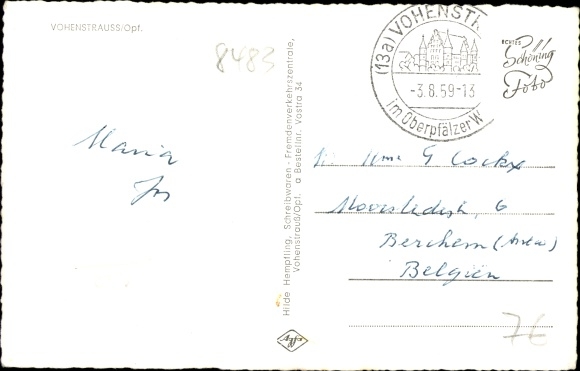 VOHENSTRAUSS/Opf.
8483
(13a) VOHENSTR
-3.8.59-13
im Oberpfälzer W
ECHTES
Schöning
Foto
Maria
Hilde Hempfling, Schreibwaren - Fremdenverkehrszentrale,
Vohenstrauß/Opf. a Bestellnr. Vostra 34
G Cockx
6
Berchem (
Belgien
Agfa
7€